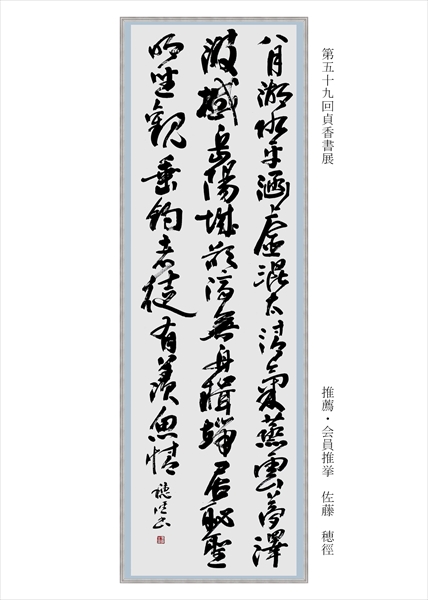 第五十九回貞香書展
推薦・会員推挙　佐藤　穂徑
八月湖水平涵虚混太清氣蒸雲夢澤
波撼岳陽城欲済無舟楫端居恥聖
明坐觀垂釣者徒有羨魚情 穂径書